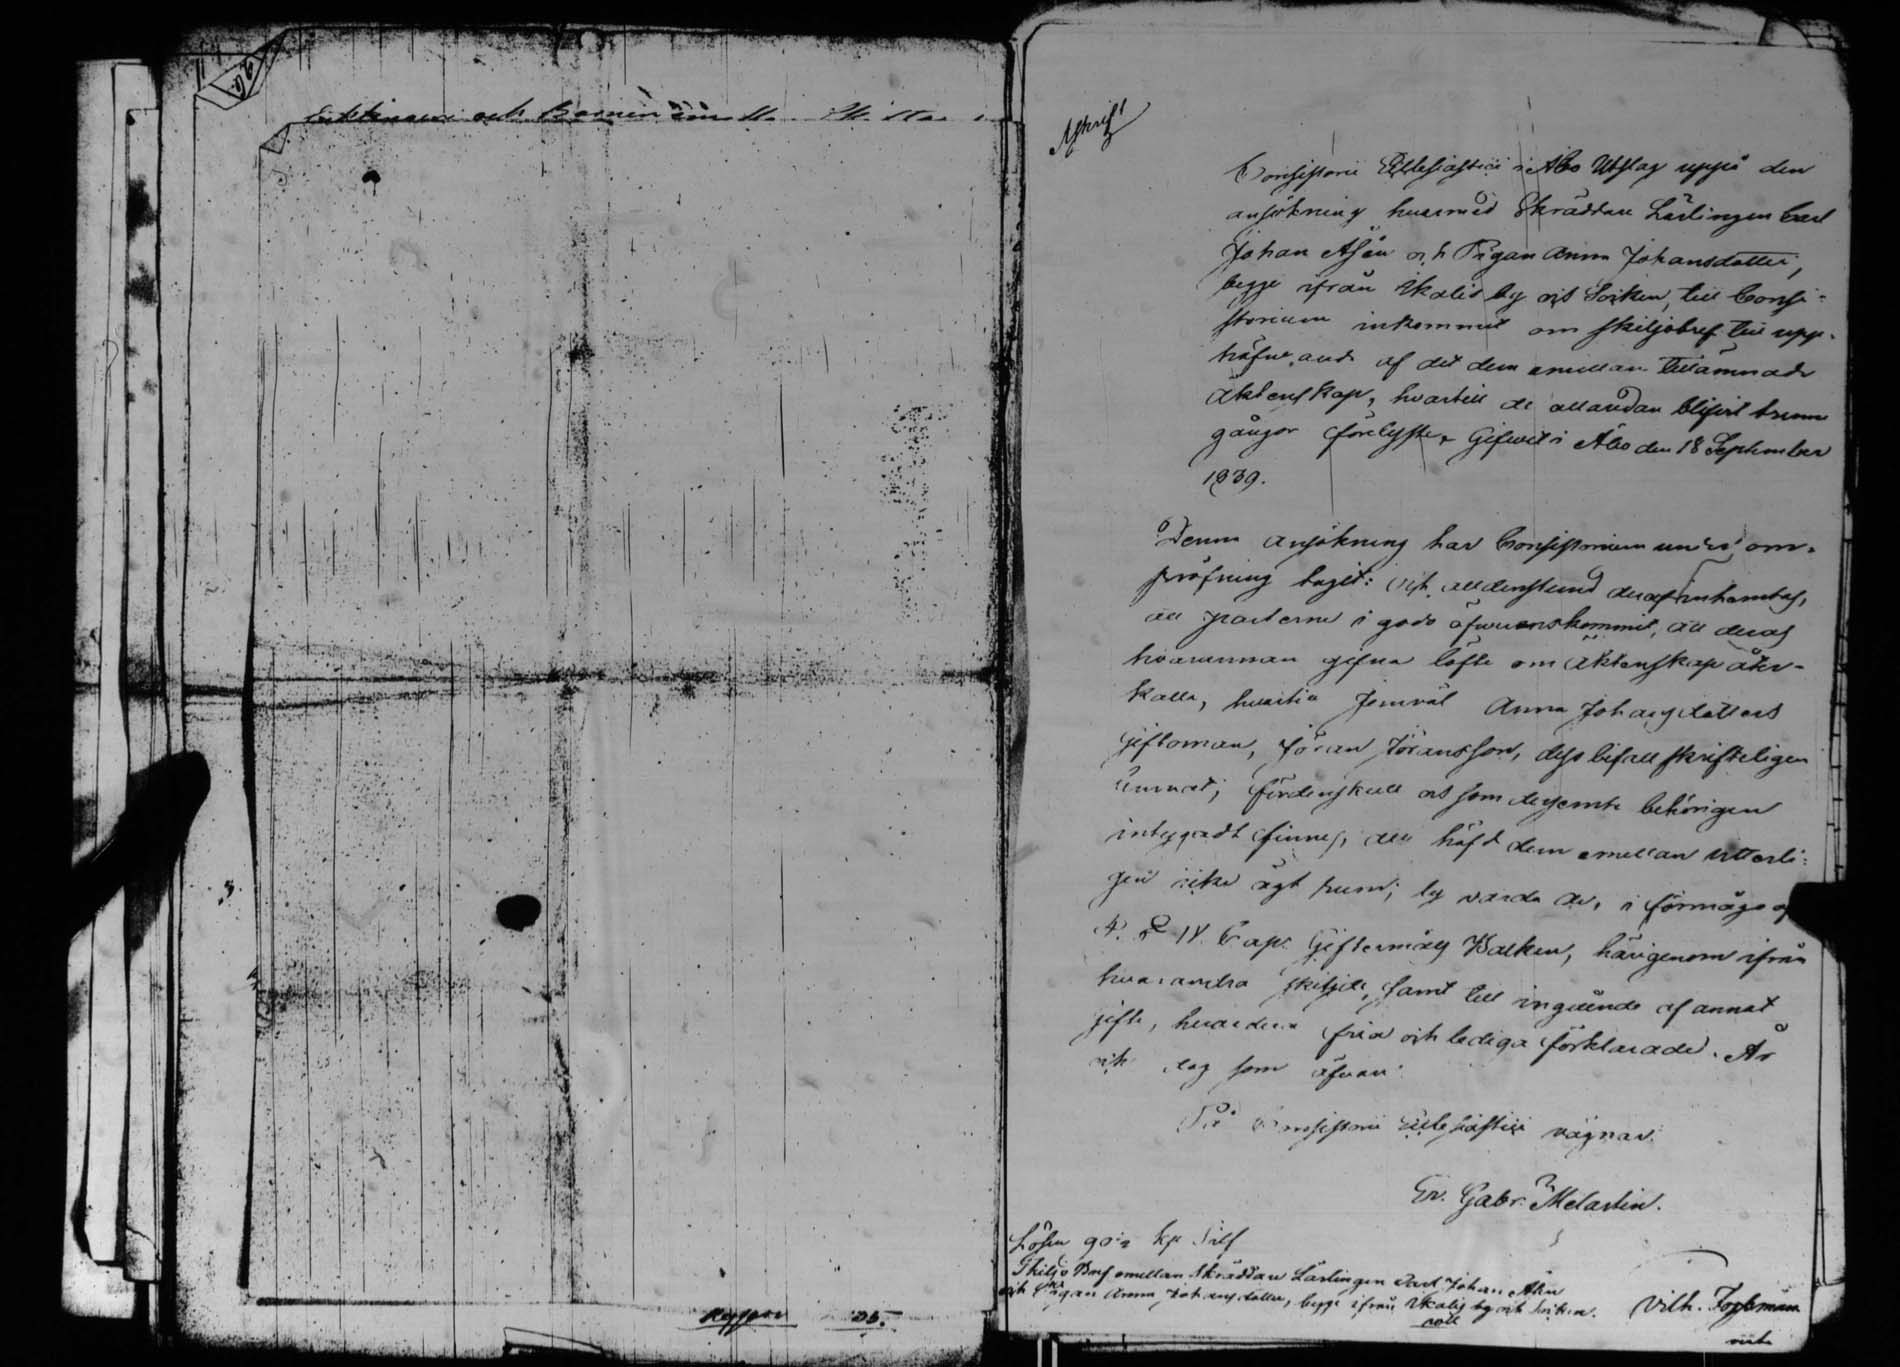 och Barnen
Afskrift
Consistorii Ecclesiastici i Åbo Utslag uppå den
ansökning hvarmed Skräddare Lärlingen Carl
Johan Åsén och Pigan Anna Johansdotter,
begge ifrån by och Socken, till Consi-
storium inkommit om skiljobref till upp-
häfvande af det dem emellan tillämnade
äktenskap, hvartill de allaredan blifvit trenne
gångor förelyste. Gifwet i Åbo den 18 September
1839.
Denna ansökning har Consistorium under om-
pröfning tagit: och alldenstund deraf inhemtas,
att parterne i godo öfverenskommit, att deras
hvarannan gifna löfte om äktenskap åter-
kalla, hvartill jemväl Anna Johansdotters
giftoman, Jöran Jöransson, dess bifall skrifteligen
lemnat; fördenskull och som dessemte behörigen
intygadt finnes, att häfd dem emellan ytterli-
gen icke ägt rum; ty varda de, i förmågo af
4. § 14. Cap. Giftermåls Balken, härigenom ifrån
hvarandra skiljde, samt till ingående af annat
gifte, hvardera fria och lediga förklarade. År
och dag som ofvan.
På Consistorii Ecclesiastici vägnar.
Er. Gabr. Melartin.
Lösen 90 kp Silf
Skiljo Bref emellan Skräddare Lärlingen Carl Johan Åsén
och Pigan Anna Johansdotter, begge ifrån by och Socken.
Vilh.